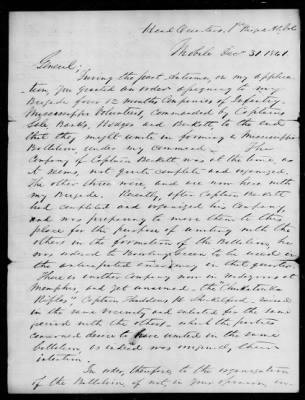 Head Quarters, 1st Brigade
Mobile Decr 31. 1861.
General;
During the past Autumn, on my applica-
tion, you granted an order assigning to my
Brigade four 12 months Companies of Infantry,
Mississippi Volunteers, Commanded by Captains
Banks, and Beckett, to the end
that they might unite in forming a Mississippi
Battalion, under my command. The
Company of Captain Beckett was at the time, as
it seems, not quite complete and organized.
The other three were and are now here with
my Brigade. Recently, after Captain Beckett
had completed and organized his Company,
and was preparing to move them to this
place for the purpose of uniting with the
others in the formation of the Battalion, he
was ordered to Bowling Green to be used in
the anticipated emergency in that quarter.
There is another Company now in rendezvous at
Memphis, and yet unarmed - the
Rifles" Captain Thaddeus H. Shackelford, raised
in the same vicinity and enlisted for the same
period with the others - which the parties
concerned desire to have united in the same
battalion, as indeed was originally their
intention.
In order, therefore, to the organization
of the Battalion, if not in your opinion, in-